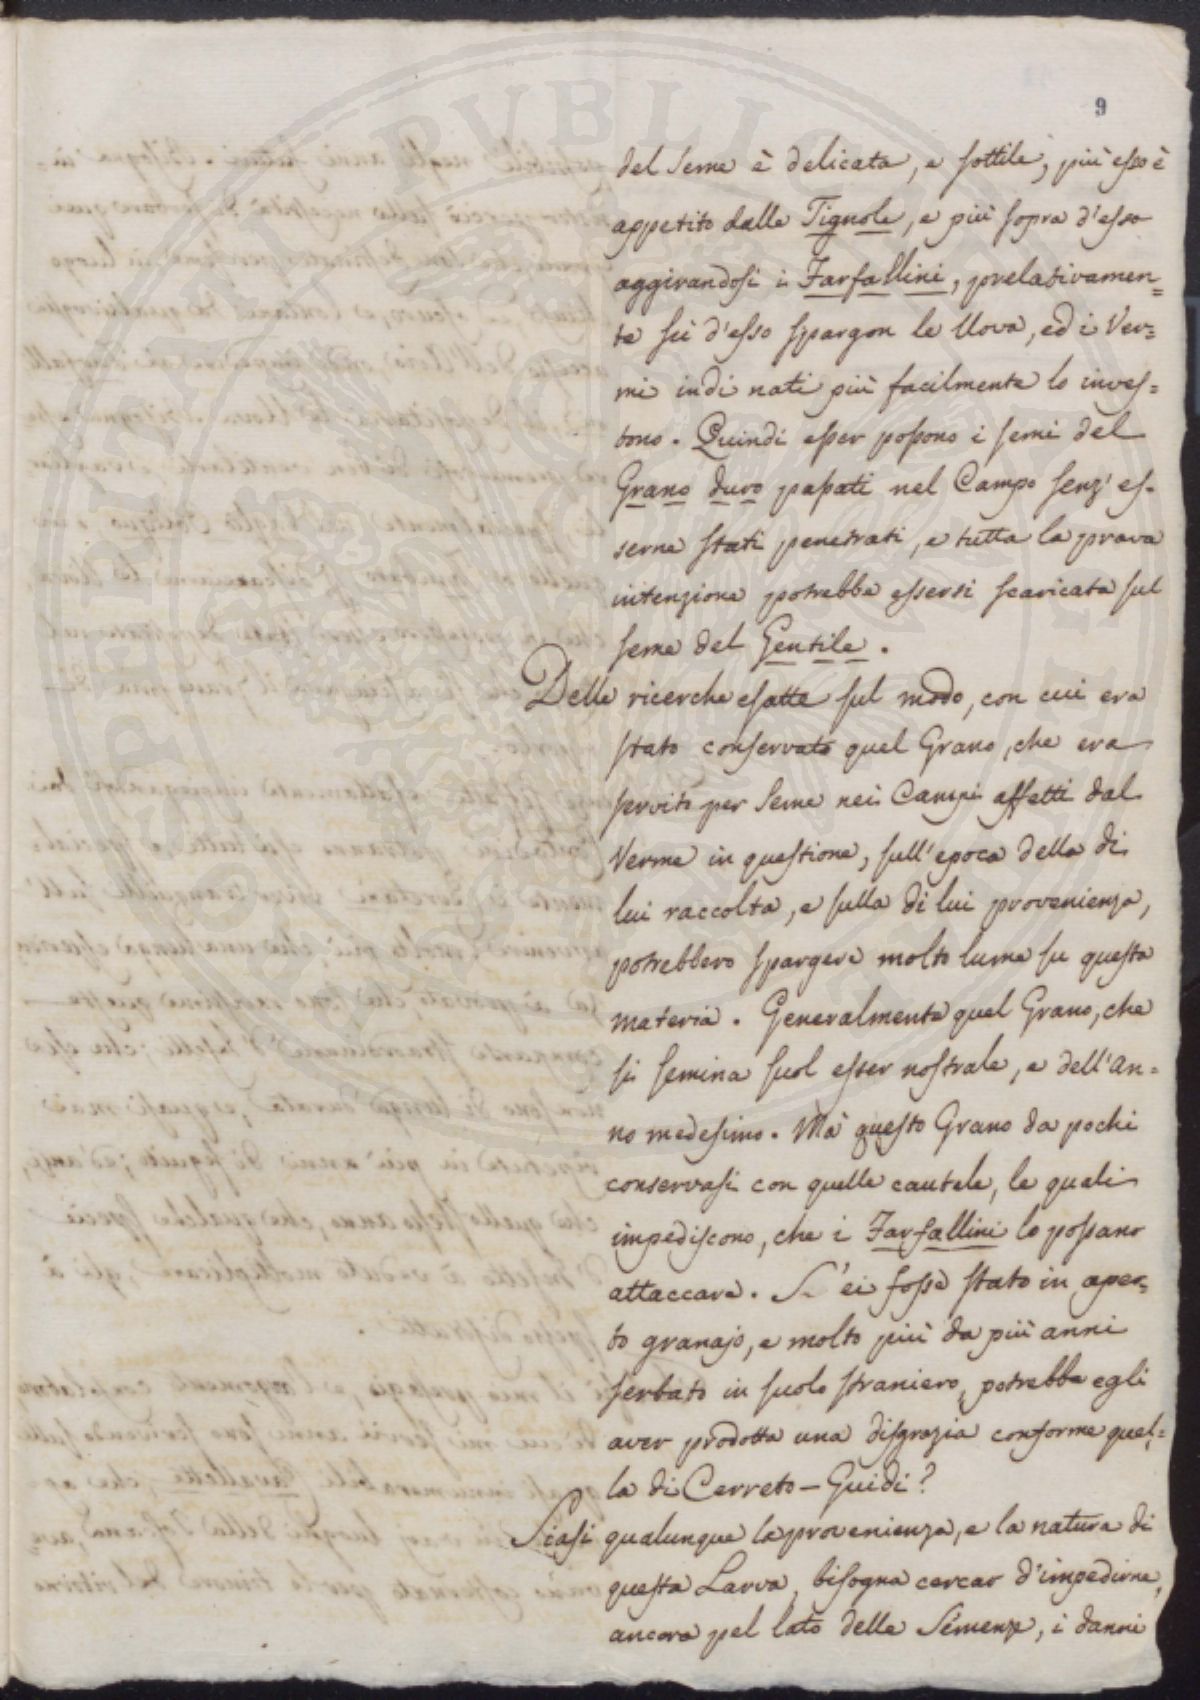 9
del Seme è delicata, e sottile, più esso è
appetito dalle Tignole, e più sopra d'esso
aggirandosi i Farfallini, prelativamen=
te sù d'esso spargon le Uova, ed i Ver=
mi indi nati più facilmente lo inves=
tono. Quindi esser possono i semi del
Grano duro passati nel Campo senz' es=
serne stati penetrati, e tutta la prava
intenzione potrebbe essersi scaricata sul
seme del Gentile.
Delle ricerche esatte sul modo, con cui era
stato conservato quel Grano, che era
servito per Seme nei Campi affetti dal
Verme in questione, sull'epoca della di
lui raccolta, e sulla di lui provenienza,
potrebbero spargere molto lume su questa
materia. Generalmente quel Grano, che
si semina suol esser nostrale, e dell'An=
no medesimo. Mà questo Grano da pochi
conservasi con quelle cautele, le quali
impediscono, che i Farfallini lo possano
attaccare. S' ei fosse stato in aper=
to granajo, e molto più da più anni
serbato in suolo straniero, potrebbe egli
aver prodotta una disgrazia conforme quel=
la di Cerreto-Guidi?
Siasi qualunque la provenienza, e la natura di
questa Larva, bisogna cercar d'impedirne,
ancora pel lato delle Semenze, i danni